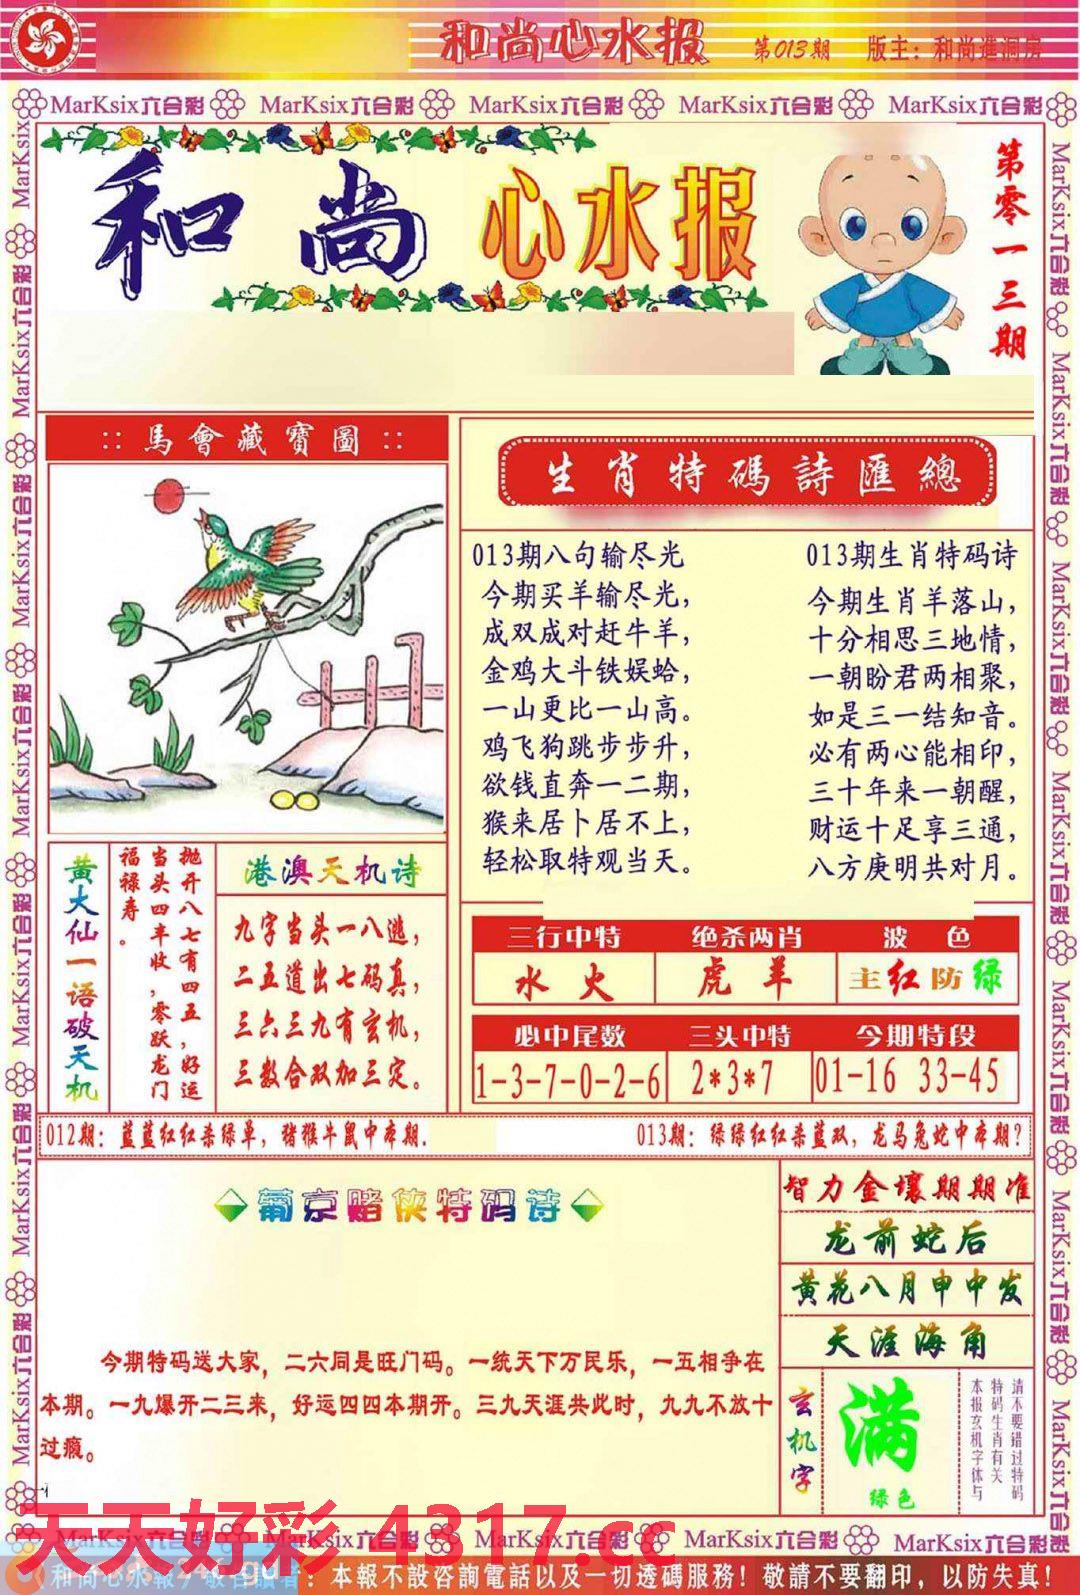 和尚心水报 第013期 版主：和尚進洞房
MarKsix六合彩 MarKsix六合彩 MarKsix六合彩 MarKsix六合彩 MarKsix六合彩
和尚心水报
第零一三期
馬會藏寶圖
生肖特碼詩匯總
013期八句输尽光
今期买羊输尽光，
成双成对赶牛羊，
金鸡大斗铁蜈蛤，
一山更比一山高。
鸡飞狗跳步步升，
欲钱直奔一二期，
猴来居卜居不上，
轻松取特观当天。
013期生肖特码诗
今期生肖羊落山，
十分相思三地情，
一朝盼君两相聚，
如是三一结知音。
必有两心能相印，
三十年来一朝醒，
财运十足享三通，
八方庚明共对月。
黄大仙一语破天机
抛开八七有四五，好运
当头四丰收，零跃龙门
福禄寿。
港澳天机诗
九字当头一八逃，
二五道出七码真，
三六三九有玄机，
三数合双加三定。
三行中特 绝杀两肖 波色
水火 虎羊 主红防绿
必中尾数 三头中特 今期特段
1-3-7-0-2-6 2*3*7 01-16 33-45
012期：蓝蓝红红杀绿单，猪猴牛鼠中本期.
013期：绿绿红红杀蓝双，龙马兔蛇中本期？
葡京赌侠特码诗
今期特码送大家，二六同是旺门码。一统天下万民乐，一五相争在
本期。一九爆开二三来，好运四四本期开。三九天涯共此时，九九不放十
过瘾。
智力金壤期期准
龙前蛇后
黄花八月申中发
天涯海角
玄机字
满
绿色
请不要错过特码
特码生肖有关
本报玄机字体与
天天好彩 4317.cc
MarKsix六合彩 MarKsix六合彩 MarKsix六合彩 MarKsix六合彩 MarKsix六合彩
和尚心水報 敬告讀者：本報不設咨詢電話以及一切透碼服務！敬請不要翻印，以防失真！